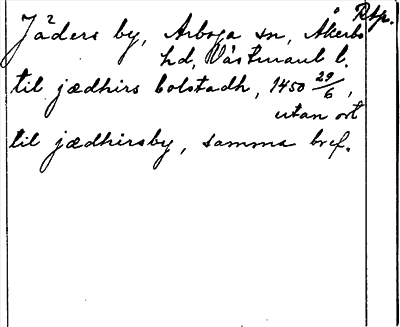 Rtp.
Jäders by, Arboga sn, Åkerbo
hd, Västmanl l.
til jædhirs bolstadh, 1450 29/6,
utan ort
til jædhirsby, samma bref.